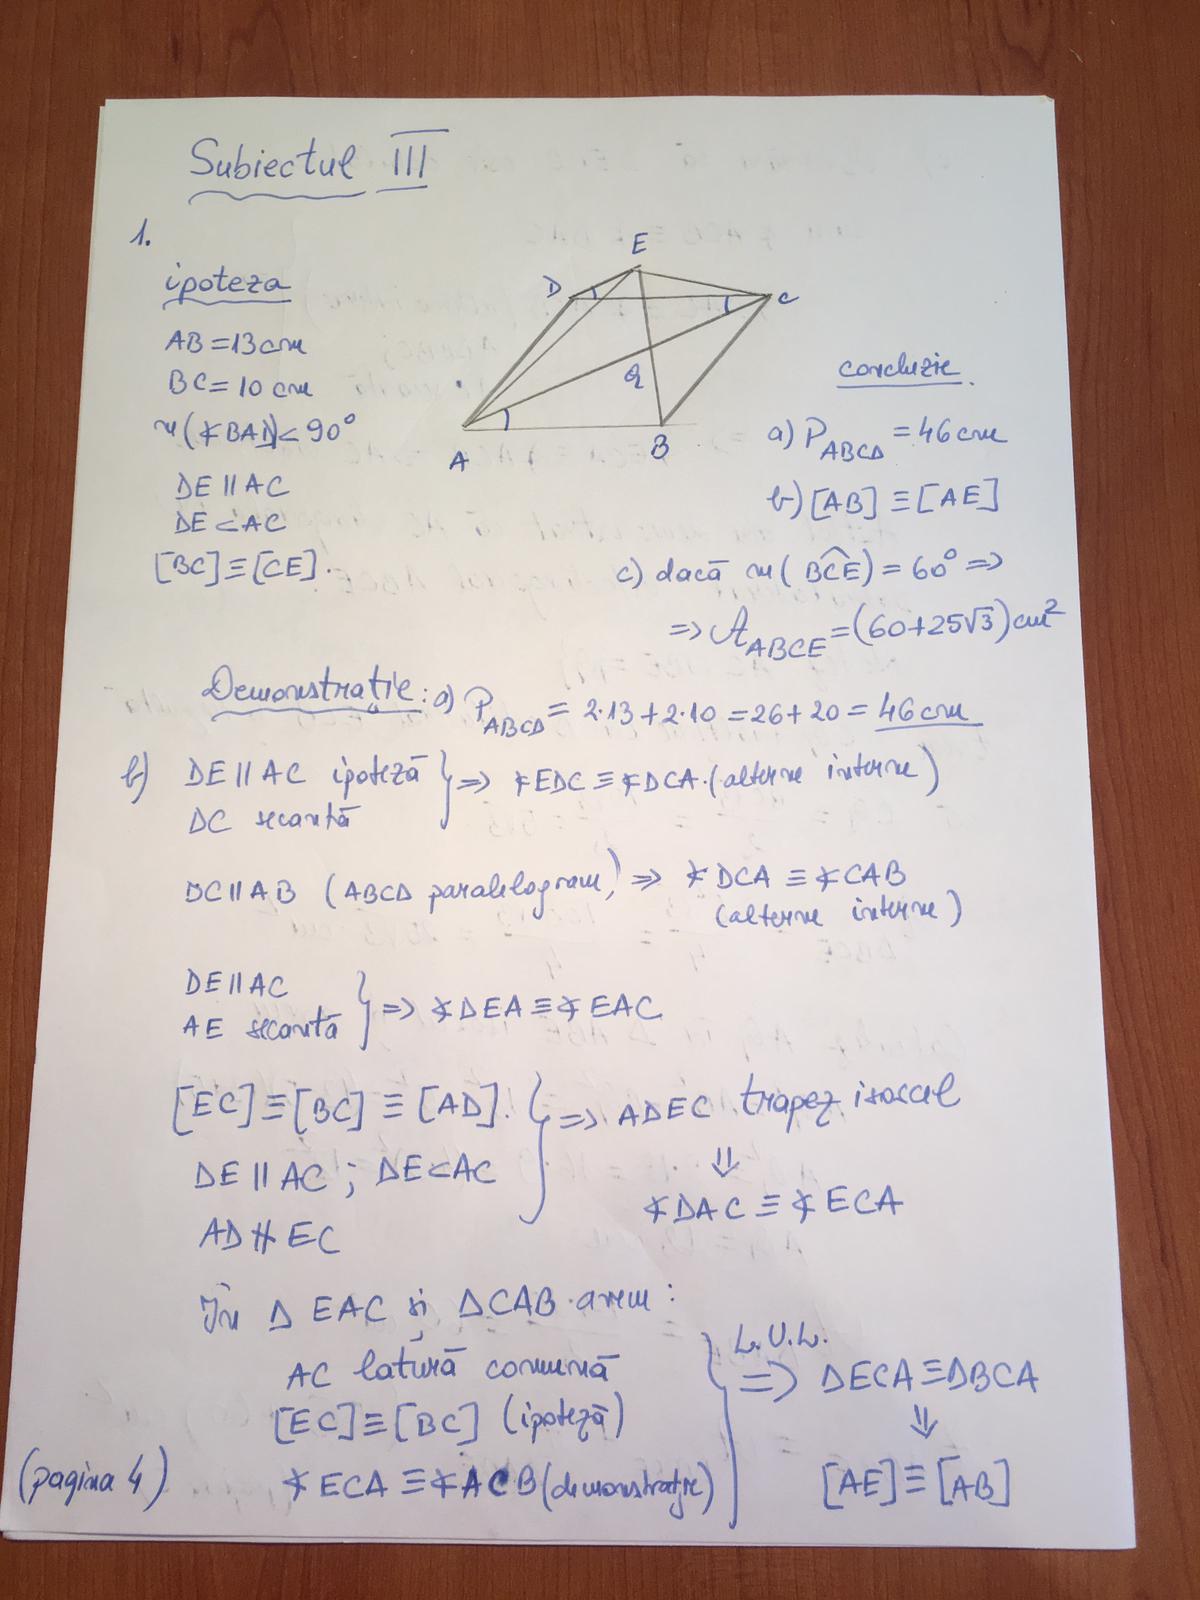 Subiectul III
1.
ipoteza
AB = 13 cm
BC = 10 cm
m(∢BAD) < 90°
DE || AC
DE < AC
[BC] ≡ [CE].
E
D
C
Q
A
B
concluzie
a) P_ABCD = 46 cm
b) [AB] ≡ [AE]
c) dacă m(BCE) = 60° =>
=> A_ABCE = (60+25√3) cm²
Demonstrație: a) P_ABCD = 2·13 + 2·10 = 26 + 20 = 46 cm
b) DE || AC ipoteză } => ∢EDC ≡ ∢DCA (alterne interne)
DC secantă
DC || AB (ABCD paralelogram) => ∢DCA ≡ ∢CAB
(alterne interne)
DE || AC
AE secantă } => ∢DEA ≡ ∢EAC
[EC] ≡ [BC] ≡ [AD]. } => ADEC trapez isoscel
DE || AC ; DE < AC
⇓
∢DAC ≡ ∢ECA
AD ∦ EC
În Δ EAC și ΔCAB avem:
AC latură comună
L.U.L.
=> ΔECA ≡ ΔBCA
[EC] ≡ [BC] (ipoteză)
⇓
(pagina 4)
∢ECA ≡ ∢ACB (demonstrație)
[AE] ≡ [AB]